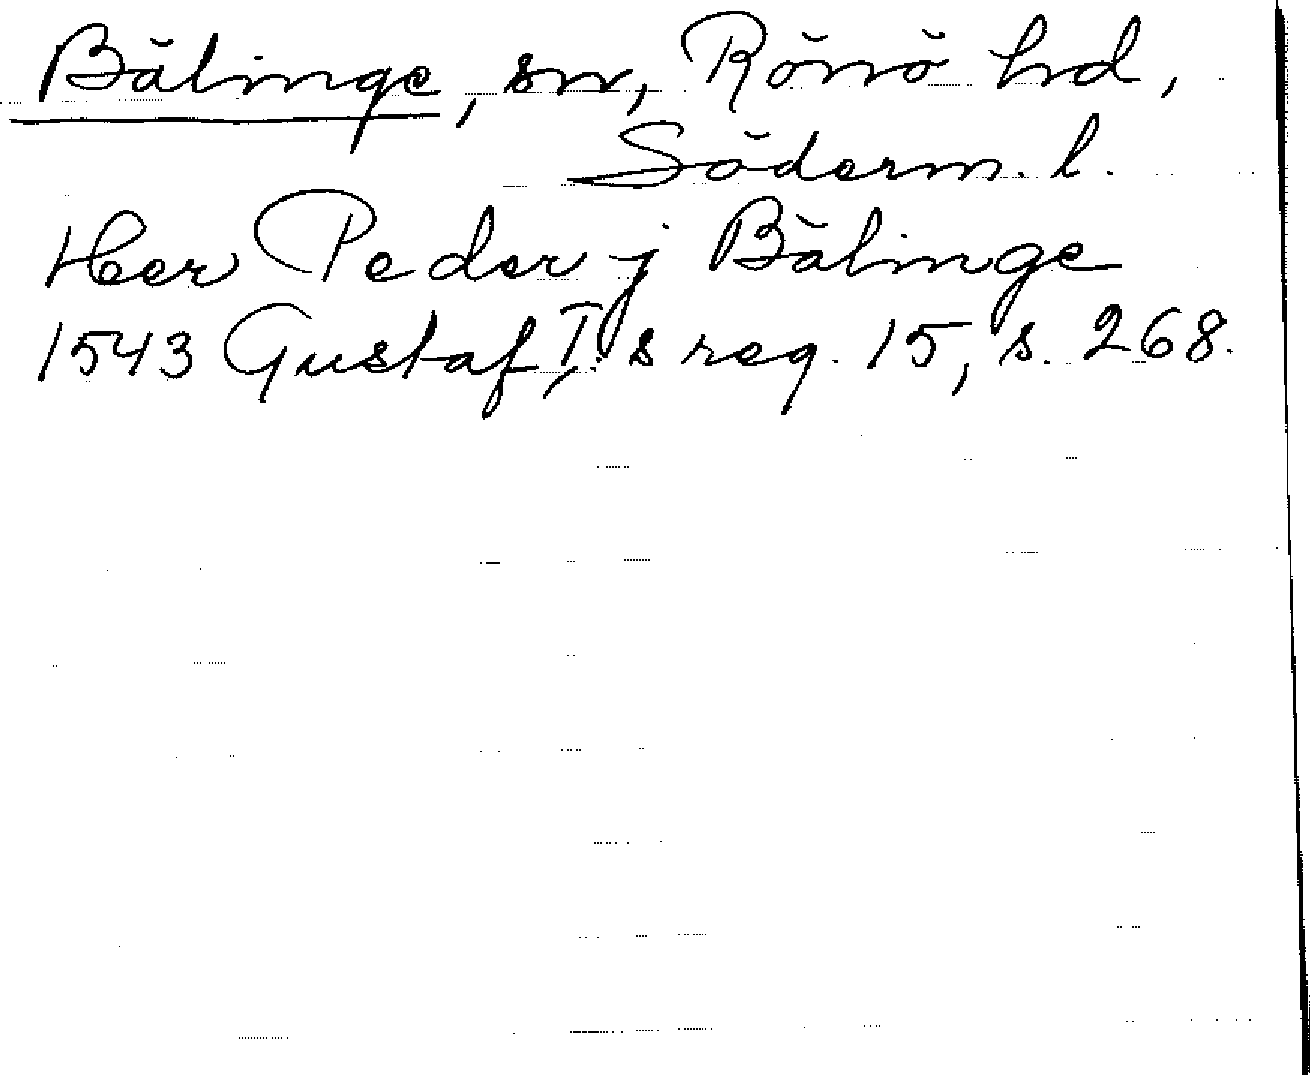 Bälinge, sn, Rönö hd,
Söderm. l.
Her Peder j Bälinge
1543 Gustaf I,s reg. 15, s. 268.